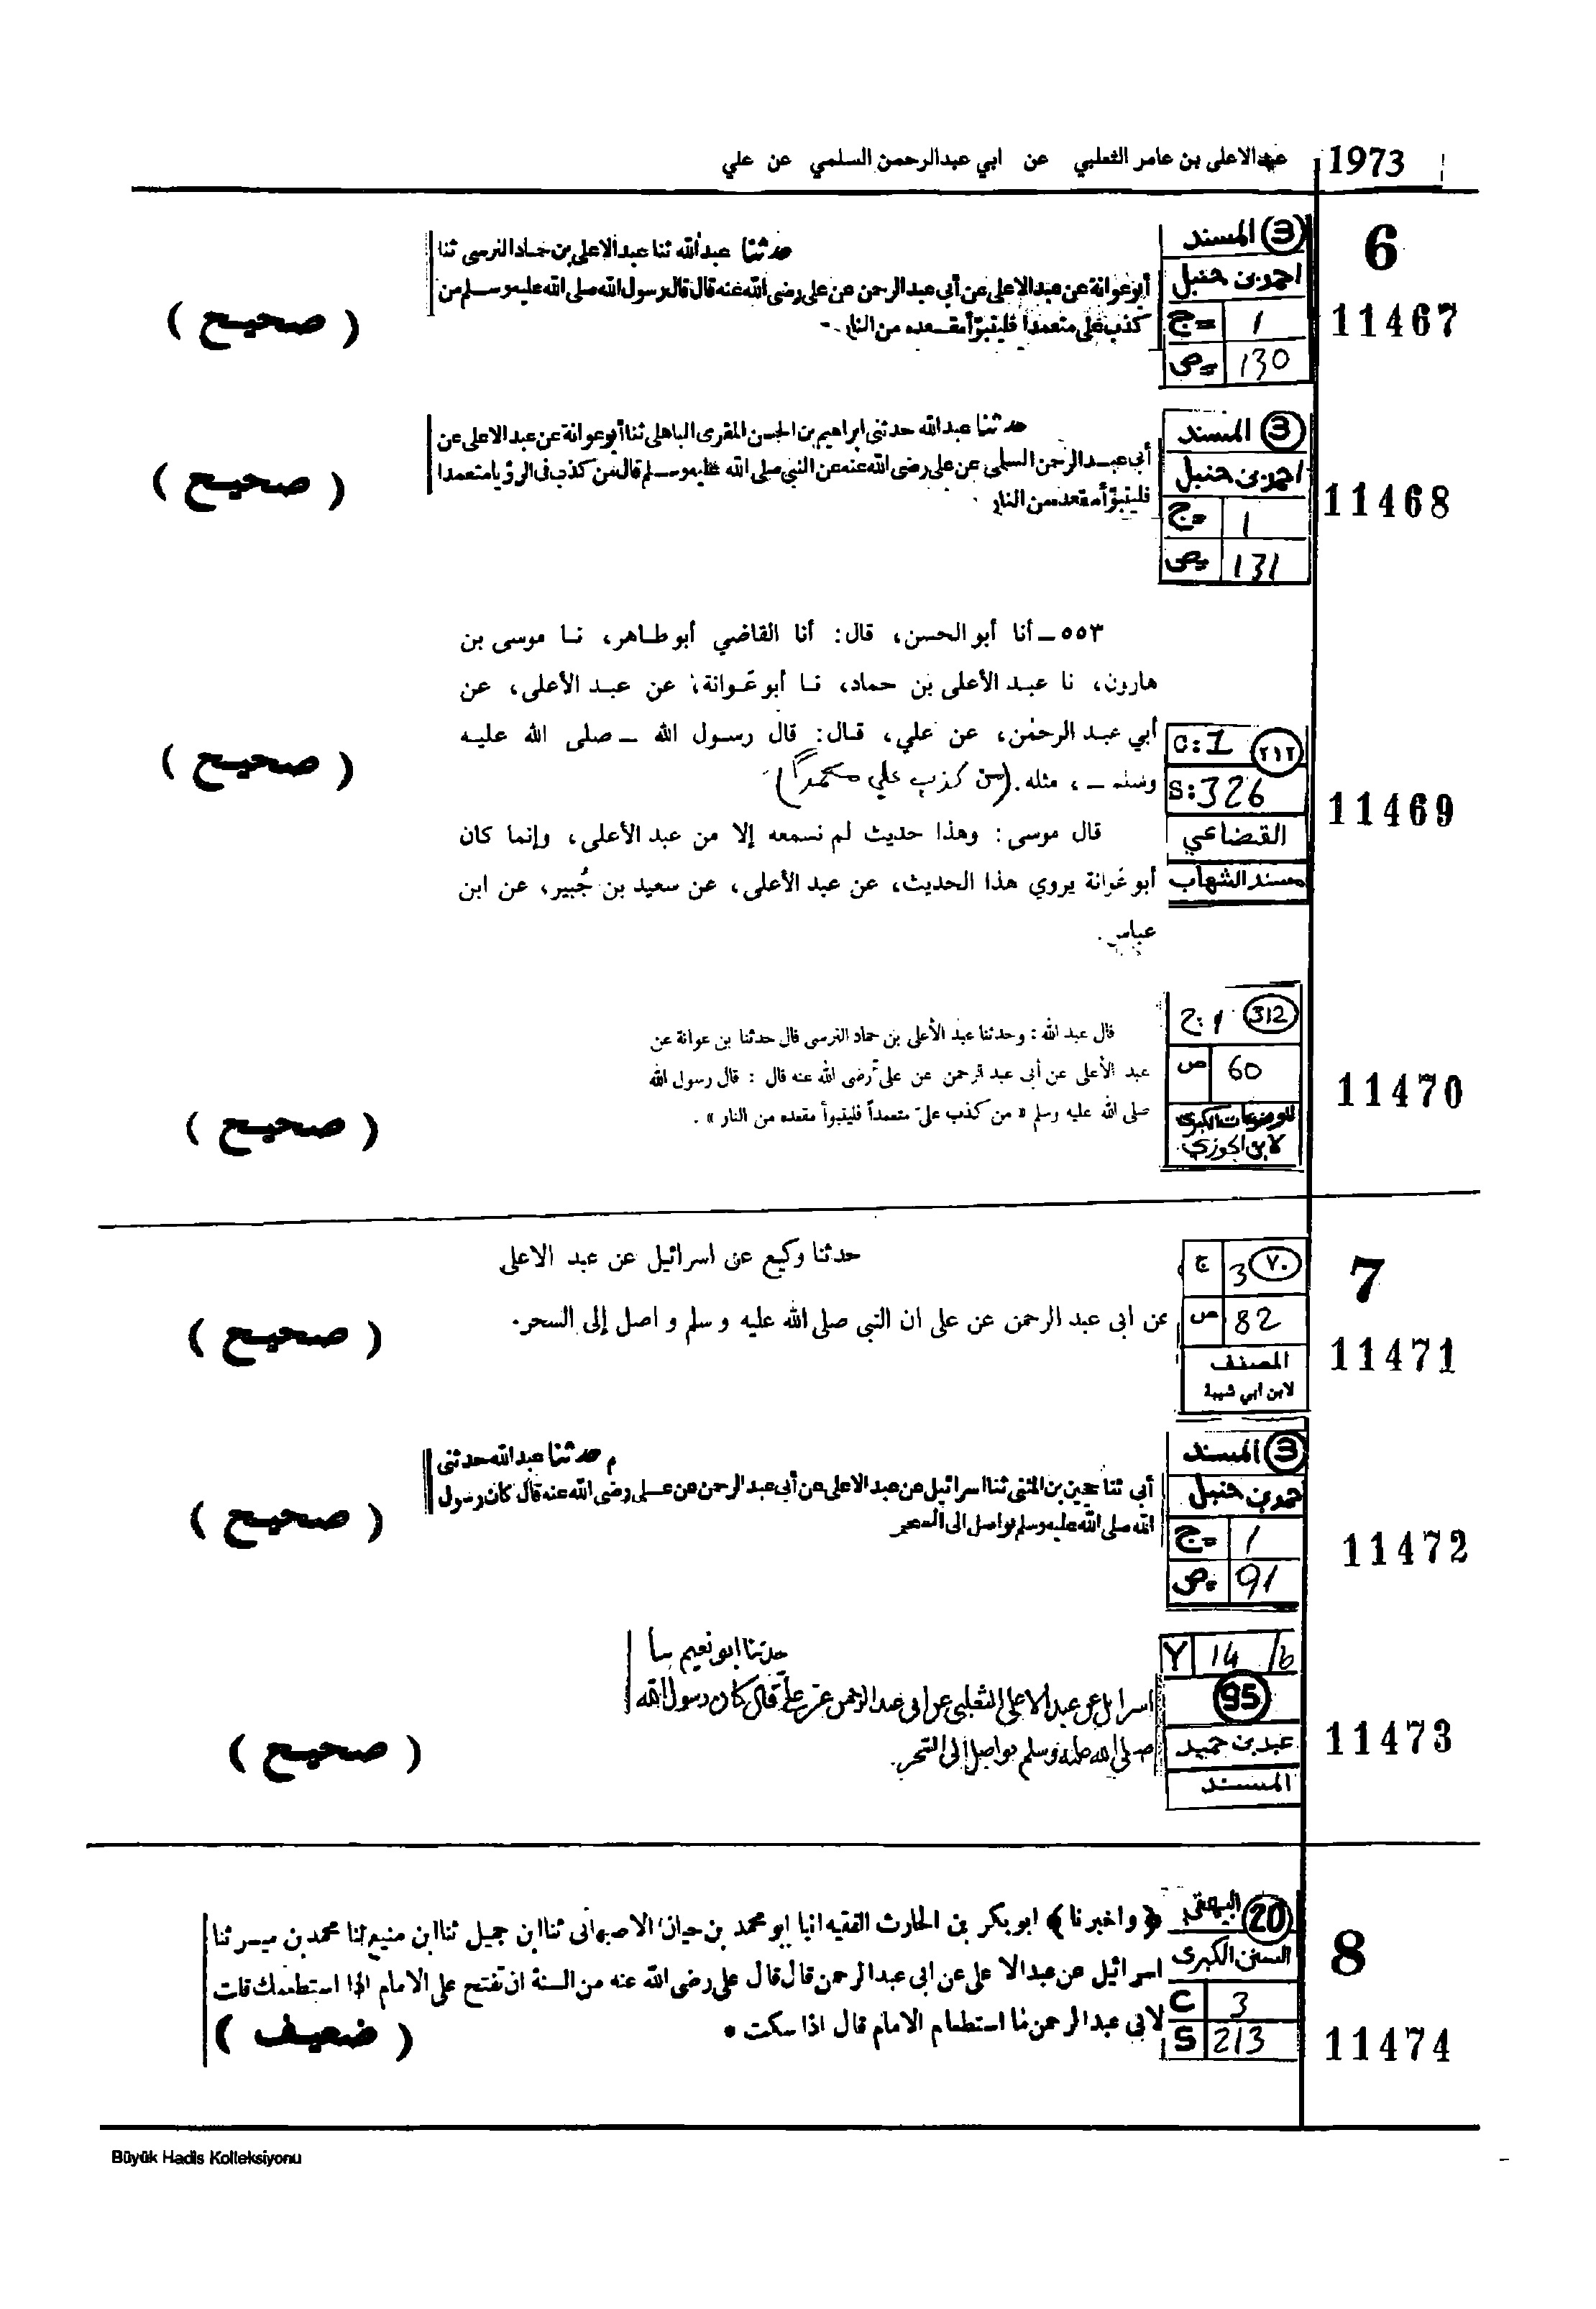 1973
عبدالاعلى بن عامر الثعلبي عن ابي عبدالرحمن السلمي عن علي
6
11467
3 المسند
احمد بن حنبل
ج= 1
ص= 130
حدثنا عبدالله ثنا عبدالاعلى بن حماد النرسى ثنا
أبو عوانة عن عبدالاعلى عن أبي عبدالرحمن عن على رضى الله عنه قال قال رسول الله صلى الله عليه وسلم من
كذب على متعمدا فليتبوّأ مقعده من النار
( صحيح )
11468
3 المسند
احمد بن حنبل
ج= 1
ص= 131
حدثنا عبدالله حدثنى ابراهيم بن الحسن المقرى الباهلى ثنا أبو عوانة عن عبدالاعلى عن
أبى عبدالرحمن السلمى عن على رضى الله عنه عن النبى صلى الله عليه وسلم قال من كذب فى الرؤيا متعمدا
فليتبوّأ مقعده من النار
( صحيح )
11469
C: 1 ٢١٢
S: 326
القضاعي
مسند الشهاب
٥٥٣ ــ أنا أبو الحسن، قال: أنا القاضي أبو طاهر، نا موسى بن
هارون، نا عبد الأعلى بن حماد، نا أبو عَوانة، عن عبد الأعلى، عن
أبي عبد الرحمٰن، عن علي، قال: قال رسول الله ــ صلى الله عليه
وسلم ــ ، مثله. (من كذب علي متعمداً)
قال موسى: وهذا حديث لم نسمعه إلا من عبد الأعلى، وإنما كان
أبو عَوانة يروي هذا الحديث، عن عبد الأعلى، عن سعيد بن جُبير، عن ابن
عباس.
( صحيح )
11470
ج: 1 312
ص 60
الموضوعات الكبرى
لابن الجوزي
قال عبد الله : وحدثنا عبد الأعلى بن حماد النرسى قال حدثنا بن عوانة عن
عبد الأعلى عن أبى عبد الرحمن عن على رضى الله عنه قال : قال رسول الله
صلى الله عليه وسلم « من كذب علىّ متعمداً فليتبوأ مقعده من النار » .
( صحيح )
7
11471
ج 3 ٧٠
ص 82
المصنف
لابن ابي شيبة
حدثنا وكيع عن اسرائيل عن عبد الاعلى
عن ابى عبد الرحمن عن على ان النبى صلى الله عليه و سلم و اصل إلى السحر.
( صحيح )
11472
3 المسند
احمد بن حنبل
ج= 1
ص= 91
م حدثنا عبدالله حدثنى
أبى ثنا حجين بن المثنى ثنا اسرائيل عن عبدالاعلى عن أبى عبدالرحمن عن على رضى الله عنه قال كان رسول
الله صلى الله عليه وسلم يواصل الى السحر
( صحيح )
11473
Y 14 /b
95
عبد بن حميد
المسند
حدثنا ابو نعيم ثنا
اسرايل عن عبد الاعلى الثعلبى عن ابى عبد الرحمن عن على قال كان رسول الله
صلى الله عليه وسلم يواصل الى السحر.
( صحيح )
8
11474
البيهقى 20
السنن الكبرى
C 3
S 213
﴿ واخبرنا ﴾ ابو بكر بن الحارث الفقيه انبا ابو محمد بن حيان الاصبهانى ثنا ابن جميل ثنا ابن منيع ثنا محمد بن ميسر ثنا
اسرائيل عن عبدالاعلى عن ابى عبدالرحمن قال قال على رضى الله عنه من السنة ان تفتح على الامام اذا استطعمك قلت
لابى عبدالرحمن ما استطعام الامام قال اذا سكت •
( ضعيف )
Büyük Hadis Kolleksiyonu